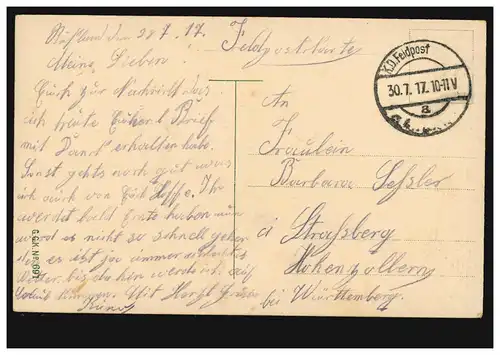 Rußland den 28 7. 17.
Meine Lieben!
Euch zur Nachricht das
ich heute Euren Brief
mit Dank erhalten habe.
Sonst gehts noch gut was
ich auch von Euch hoffe. Ihr
werdet bald Ernte haben nun
werd es nicht so schnell gehen
es ist ja immer
Wetter, bis dahin werde ich auf
kommen. Mit Herzl Grüßen
Feldpostkarte
K.D. Feldpost
30.7.17.10-11V
a
An
Fräulein
Barbara Sessler
Straßberg
Hohenzollern
bei Württemberg.
G.G.K. NR. 691